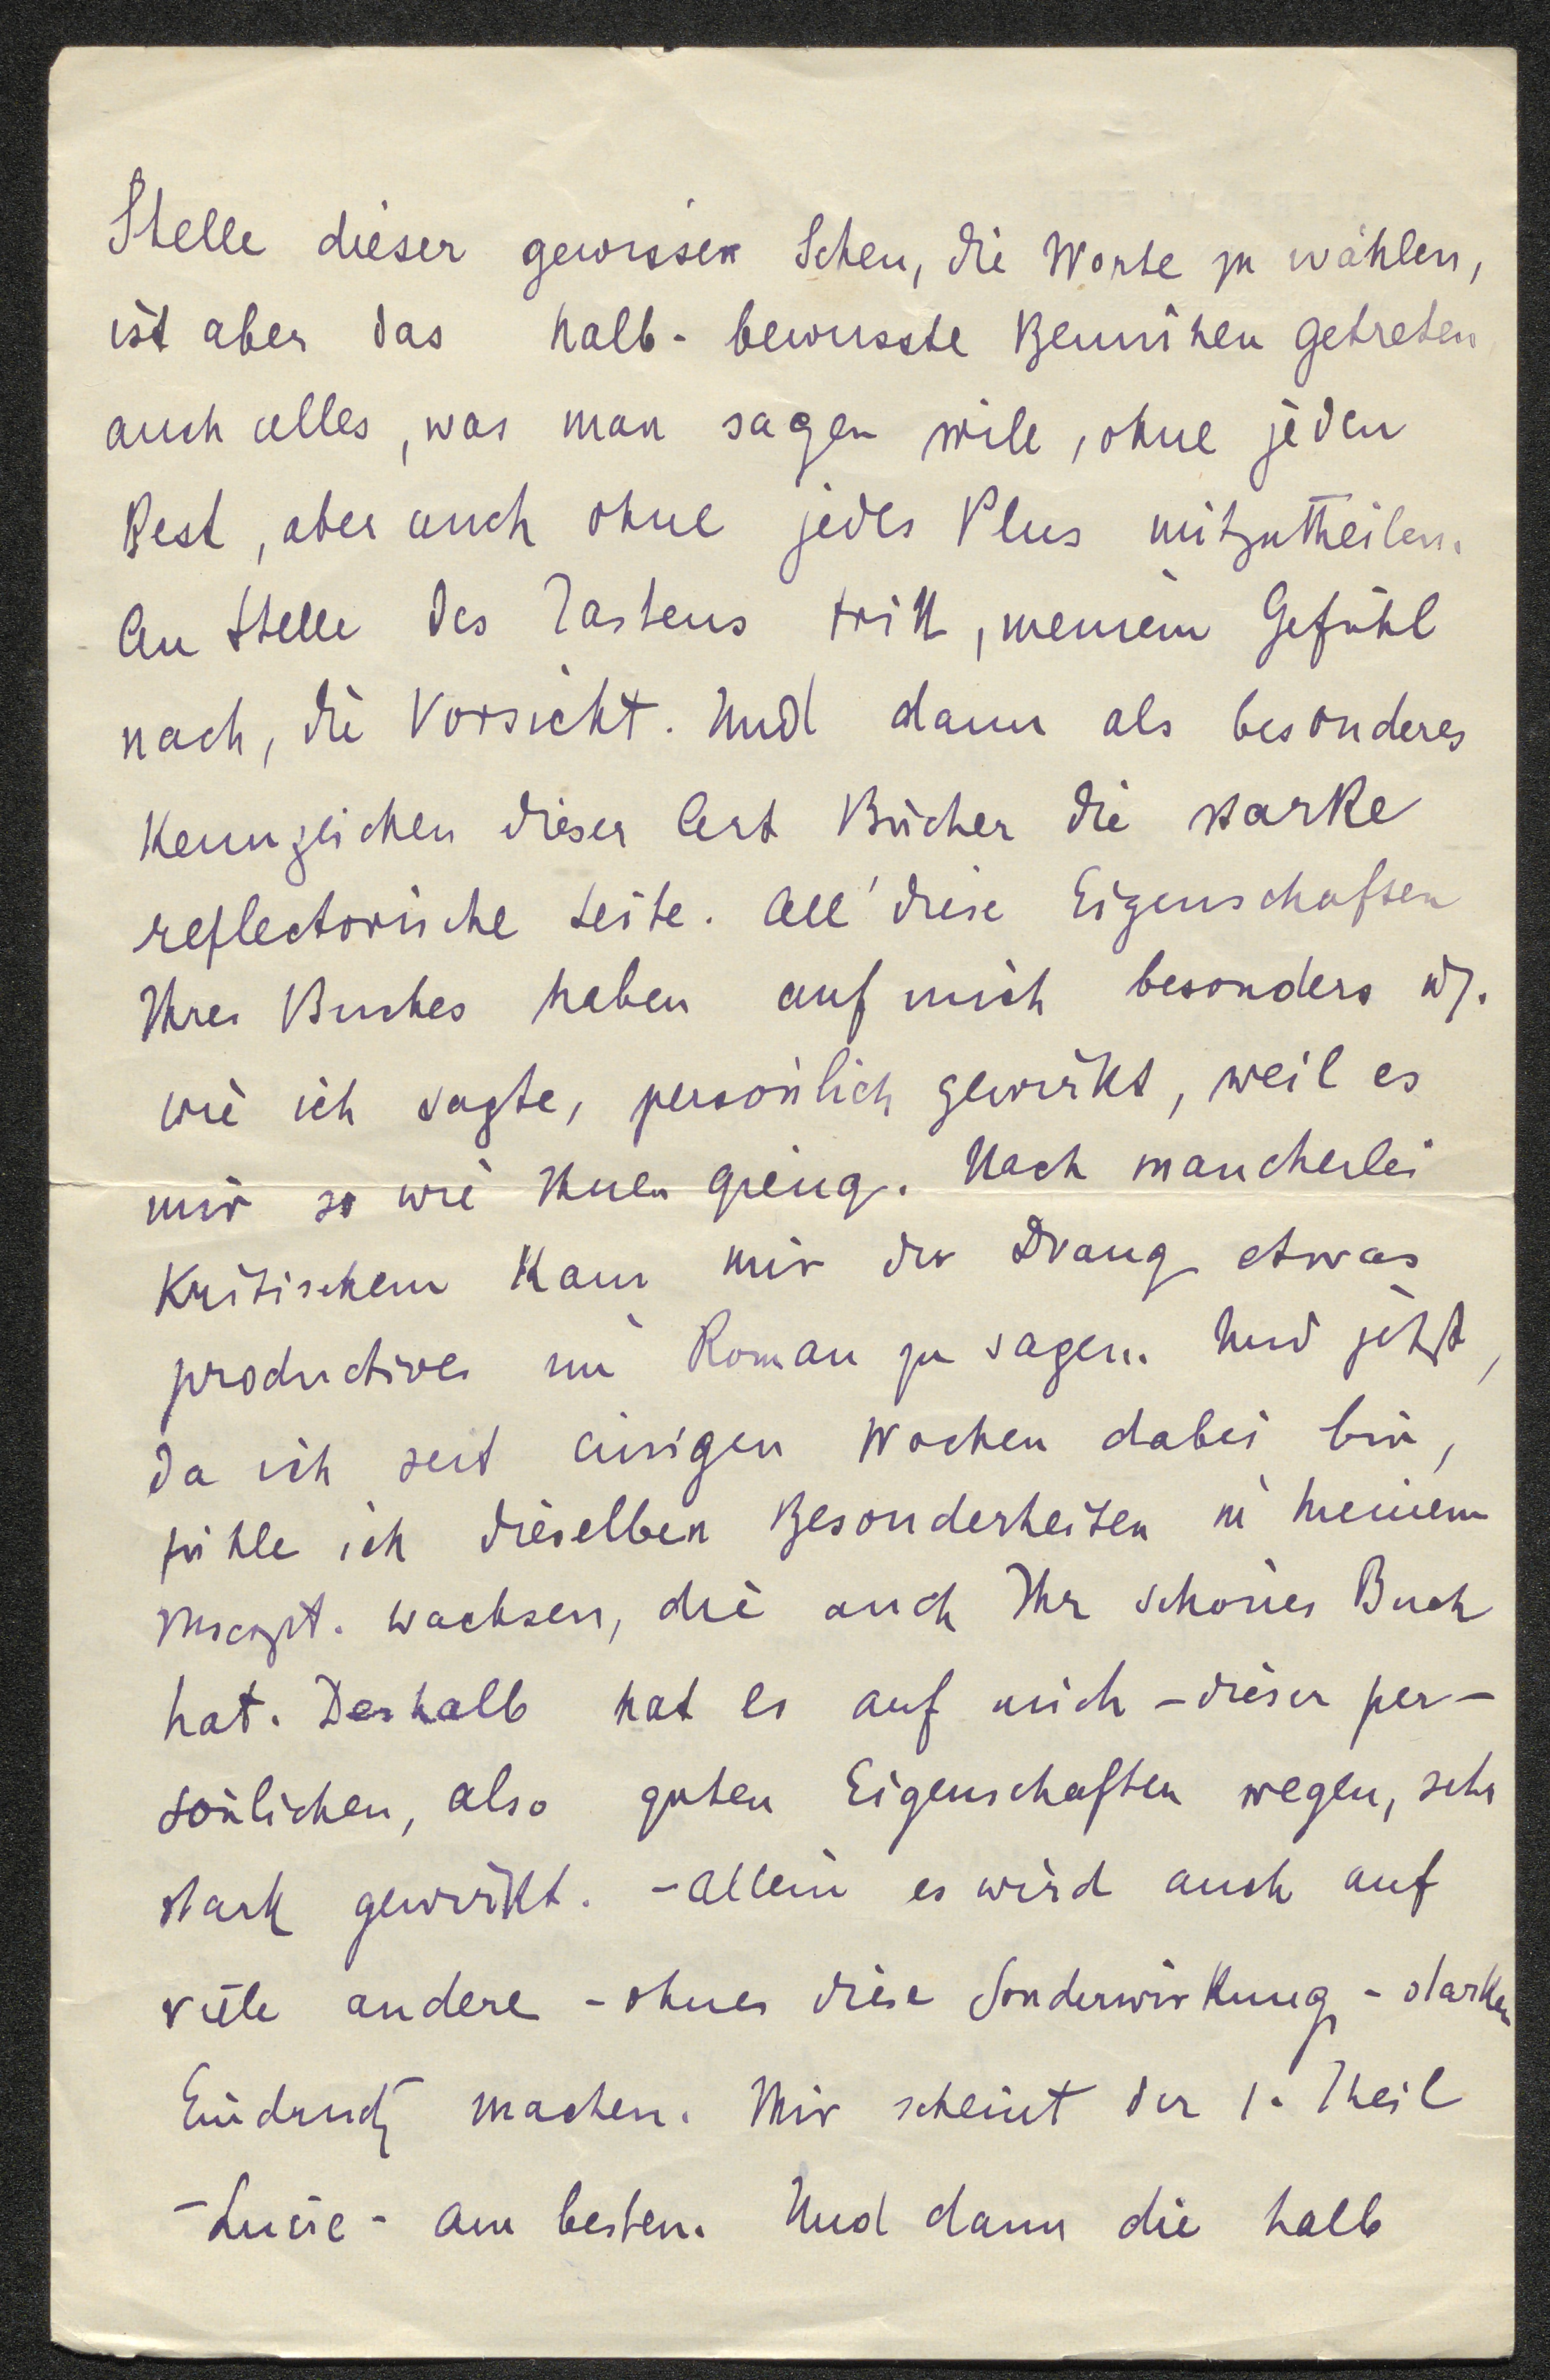 Stelle dieser gewissen Scheu, die Worte zu wählen,
ist aber das halb-bewusste Bemühen getreten
auch alles, was man sagen will, ohne jeden
Rest, aber auch ohne jedes Plus mitzutheilen.
An Stelle des Tastens tritt, meinem Gefühl
nach, die Vorsicht. Und dann als besonderes
Kennzeichen dieser Art Bücher die starke
reflectorische Seite. All' diese Eigenschaften
Ihres Buches haben auf mich besonders u.
wie ich sagte, persönlich gewirkt, weil es
mir so wie Ihnen gieng. Nach mancherlei
Kritischem kam mir der Drang etwas
productives im Roman zu sagen. Und jetzt,
da ich seit einigen Wochen dabei bin,
fühle ich dieselben Besonderheiten in meinem
Mscrpt. wachsen, die auch Ihr schönes Buch
hat. Deshalb hat es auf mich - dieser per-
sönlichen, also guten Eigenschaften wegen, sehr
stark gewirkt. - Allein es wird auch auf
viele andere - ohne diese Sonderwirkung - starken
Eindruck machen. Mir scheint der 1. Theil
- Lucie - am besten. Und dann die halb